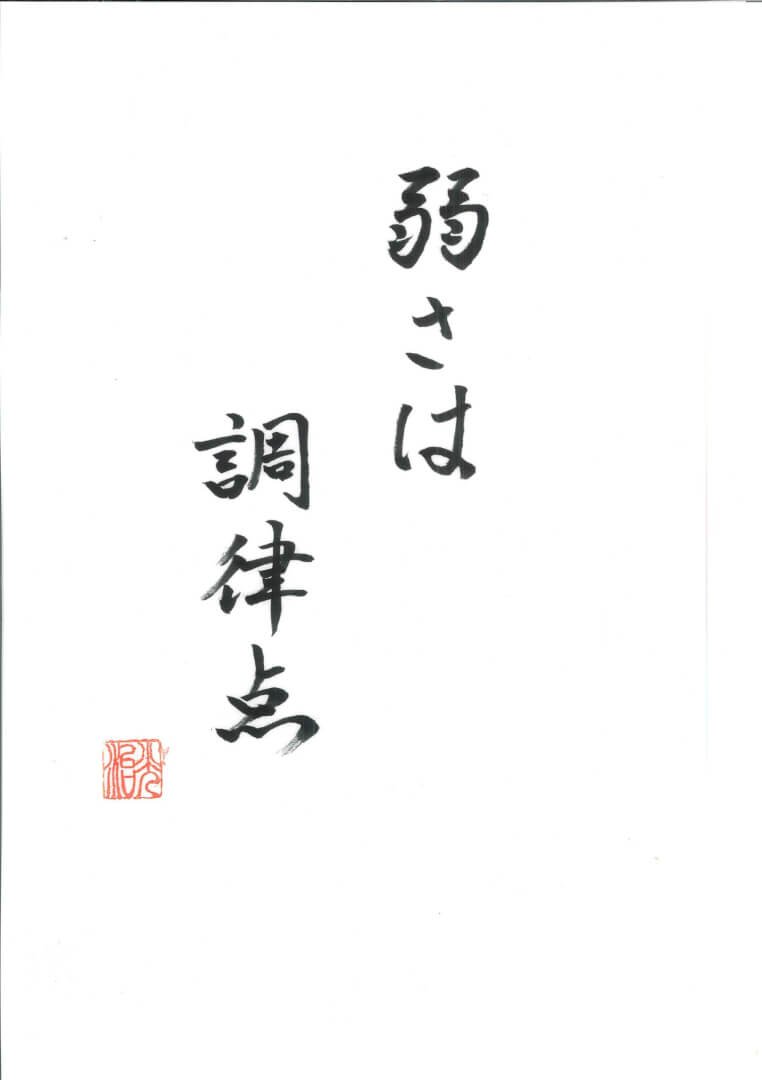 弱さは
調律点